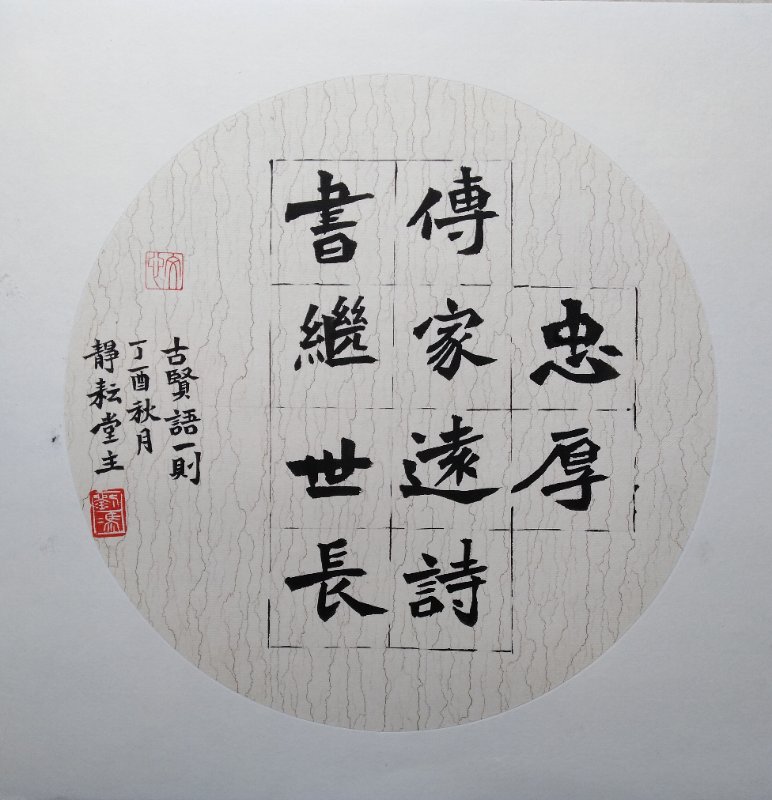 忠厚
傳家遠詩
書繼世長
古賢語一則
丁酉秋月
靜耘堂主